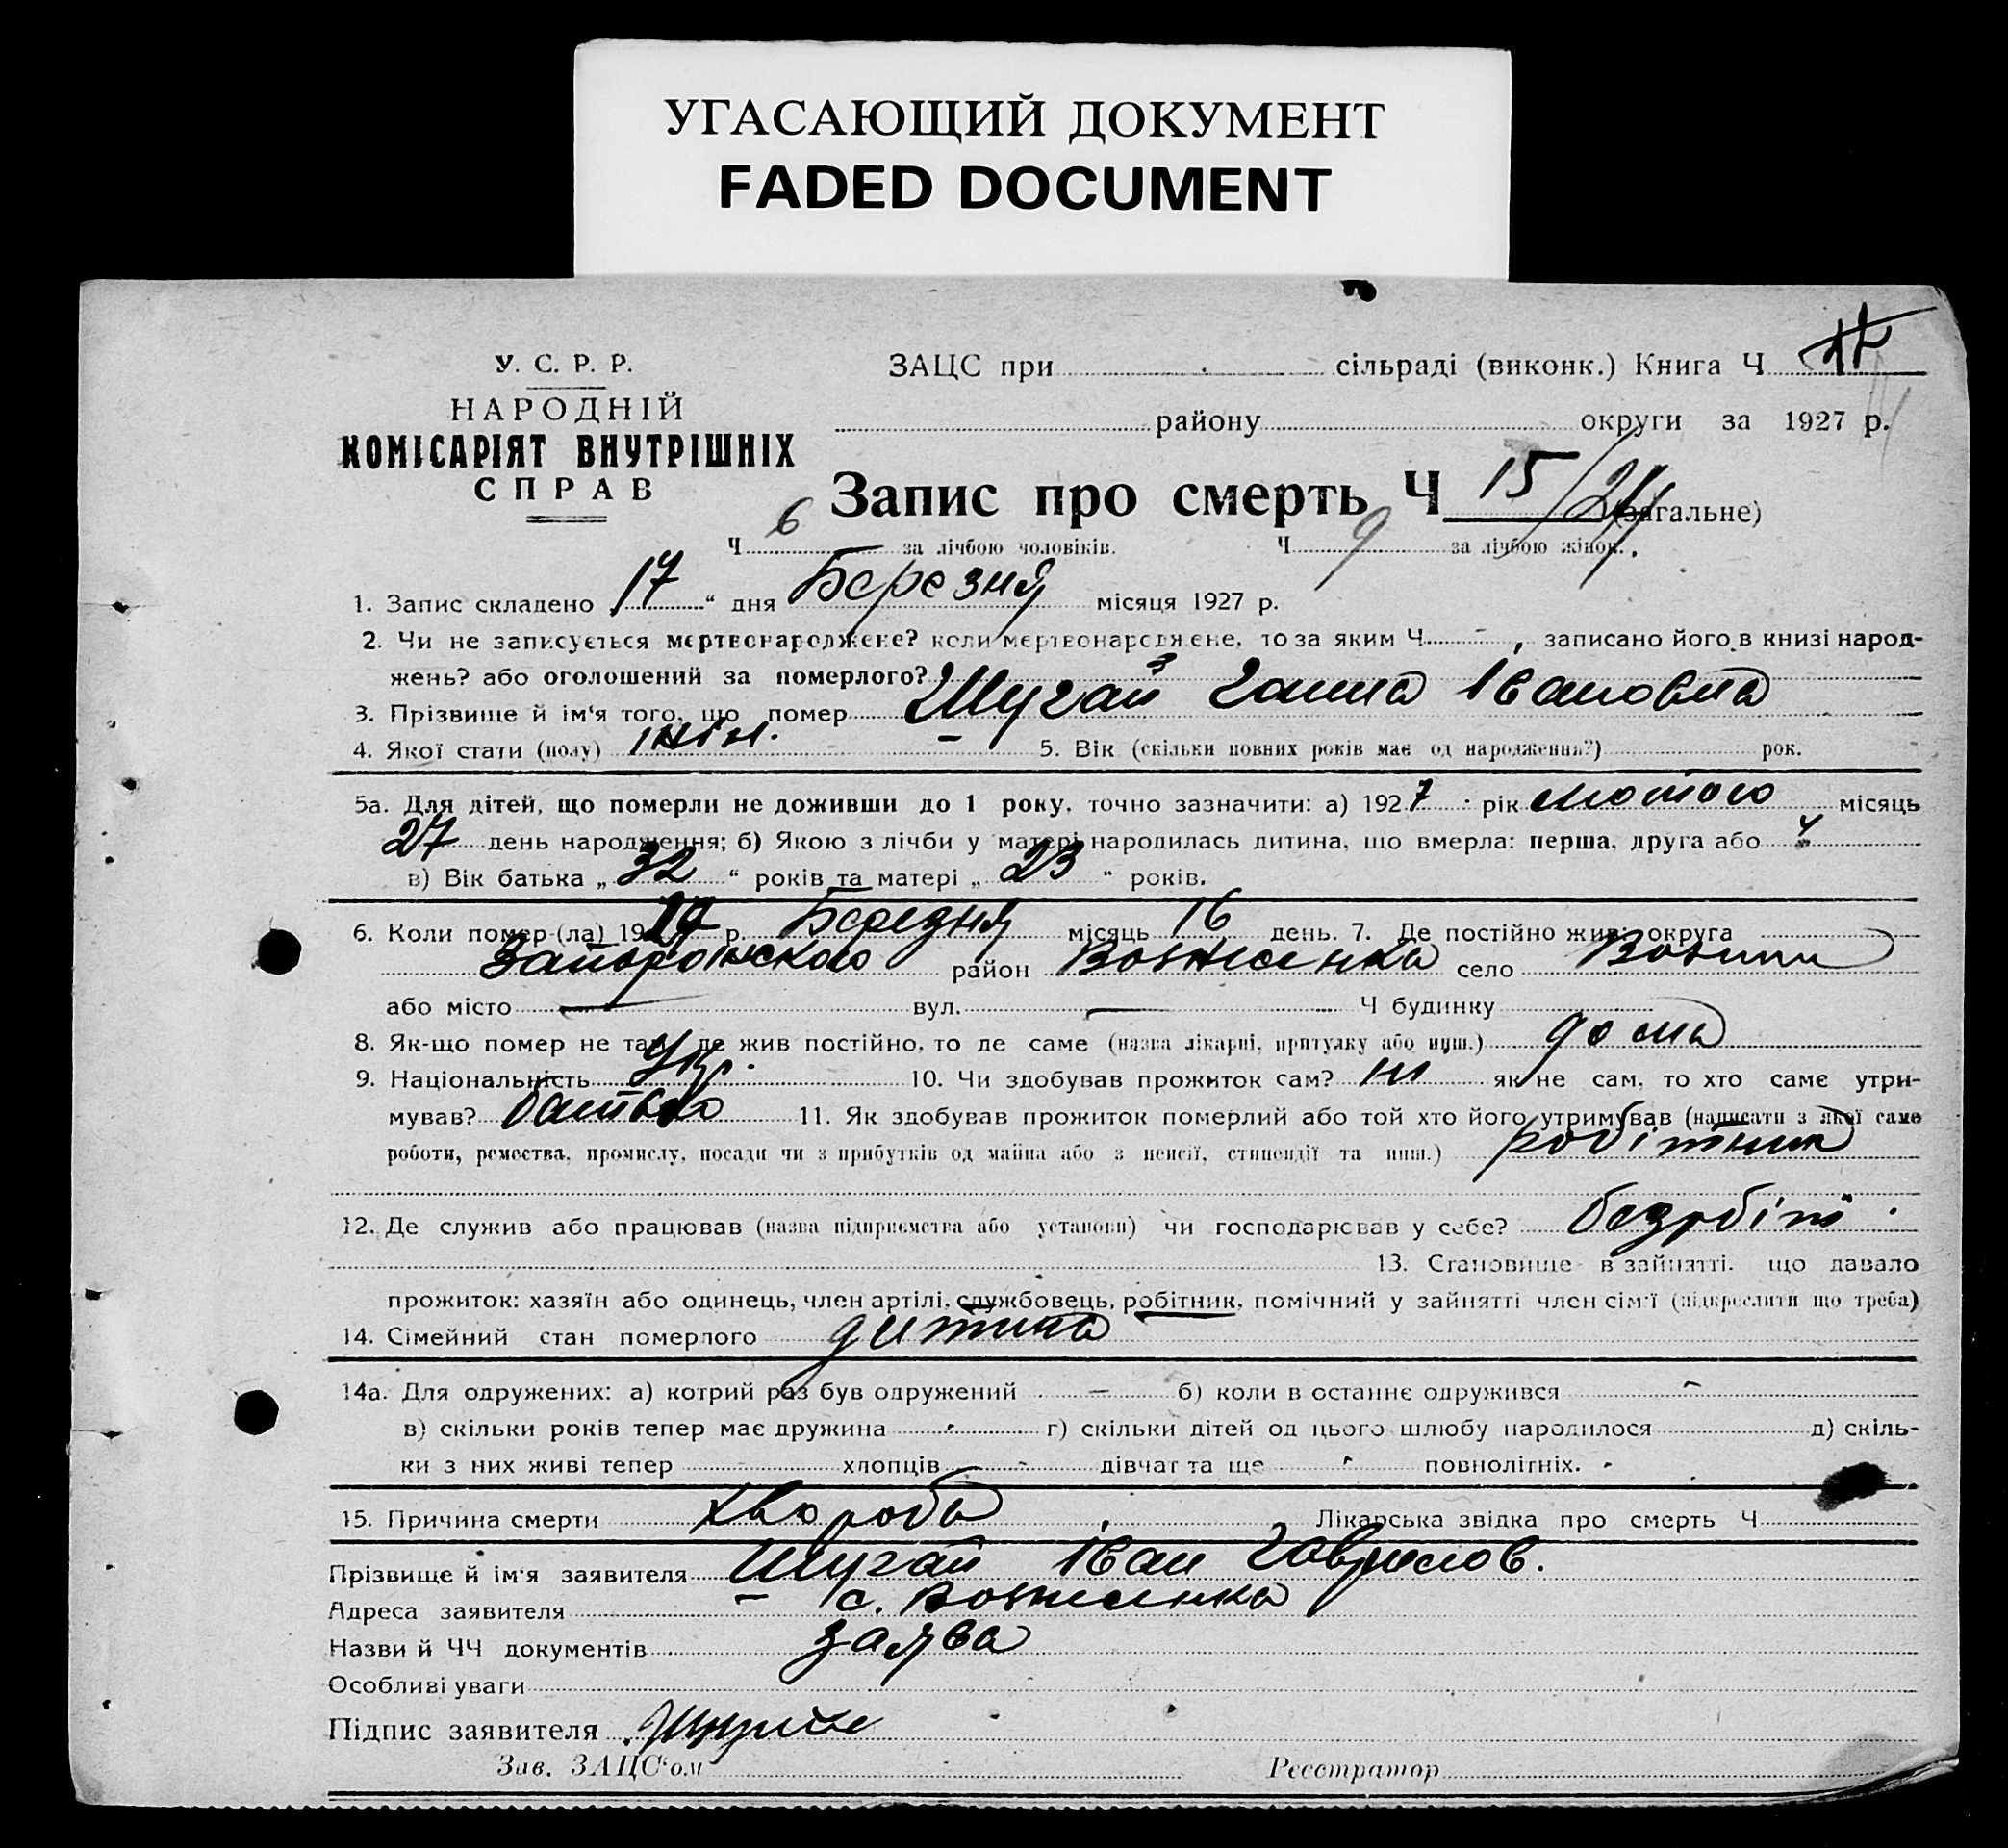 УГАСАЮЩИЙ ДОКУМЕНТ
FADED DOCUMENT
У. С. Р. Р.
НАРОДНІЙ
КОМІСАРІЯТ ВНУТРІШНІХ
СПРАВ
ЗАЦС при сільраді (виконк.) Книга Ч
району округи за 1927 р.
Запис про смерть Ч 15/24 (загальне)
Ч 6 за лічбою чоловіків. Ч 9 за лічбою жінок.
1. Запис складено 17 “ дня Березня місяця 1927 р.
2. Чи не записується мертвонароджене? коли мертвонароджене, то за яким Ч - , записано його в книзі народ-
жень? або оголошений за померлого?
3. Прізвище й ім‘я того, що помер Шугай Ганна Івановна
4. Якої стати (полу) жін. 5. Вік (скільки повних років має од народження?) рок.
5а. Для дітей, що померли не доживши до 1 року, точно зазначити: а) 1927 рік Лютого місяць
27 день народження; б) Якою з лічби у матері народилась дитина, що вмерла: перша, друга або 4
в) Вік батька „ 32 “ років та матері „ 23 “ років.
6. Коли помер-(ла) 1927 р. Березня місяць 16 день. 7. Де постійно жив: округа
Запоріжского район Вознесенка село Вознесен
або місто — вул. — Ч будинку
8. Як-що помер не там, де жив постійно, то де саме (назва лікарні, притулку або инш.) дома
9. Національність Укр. 10. Чи здобував прожиток сам? ні як не сам, то хто саме утри-
мував? батько 11. Як здобував прожиток померлий або той хто його утримував (написати з якої саме
роботи, ремества, промислу, посади чи з прибутків од майна або з пенсії, стипендії та инш.) робітник
12. Де служив або працював (назва підприємства або установи) чи господарював у себе? безробіт.
13. Становище в зайнятті, що давало
прожиток: хазяїн або одинець, член артілі, службовець, робітник, помічний у зайнятті член сім‘ї (підкреслити що треба)
14. Сімейний стан померлого дитина
14а. Для одружених: а) котрий раз був одружений — б) коли в останнє одружився -
в) скільки років тепер має дружина г) скільки дітей од цього шлюбу народилося д) скіль-
ки з них живі тепер хлопців - дівчат та ще повнолітніх.
15. Причина смерти хвороба Лікарська звідка про смерть Ч
Прізвище й ім‘я заявителя Шугай Іван Гаврилов.
Адреса заявителя с. Вознесенка
Назви й ЧЧ документів заява
Особливі уваги
Підпис заявителя
Зав. ЗАЦС‘ом Реєстратор